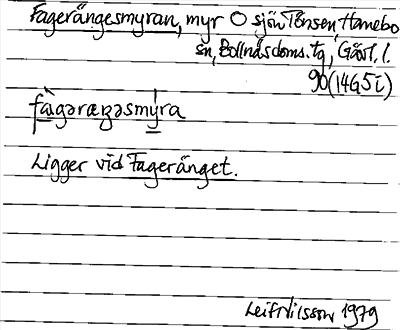 Fagerängesmyran, myr O sjön Tönsen, Hanebo
sn, Bollnäs doms. tg, Gävl. l.
90 (14G5i)
fàgəræŋəsmýra
Ligger vid Fageränget.
Leif Nilsson 1979